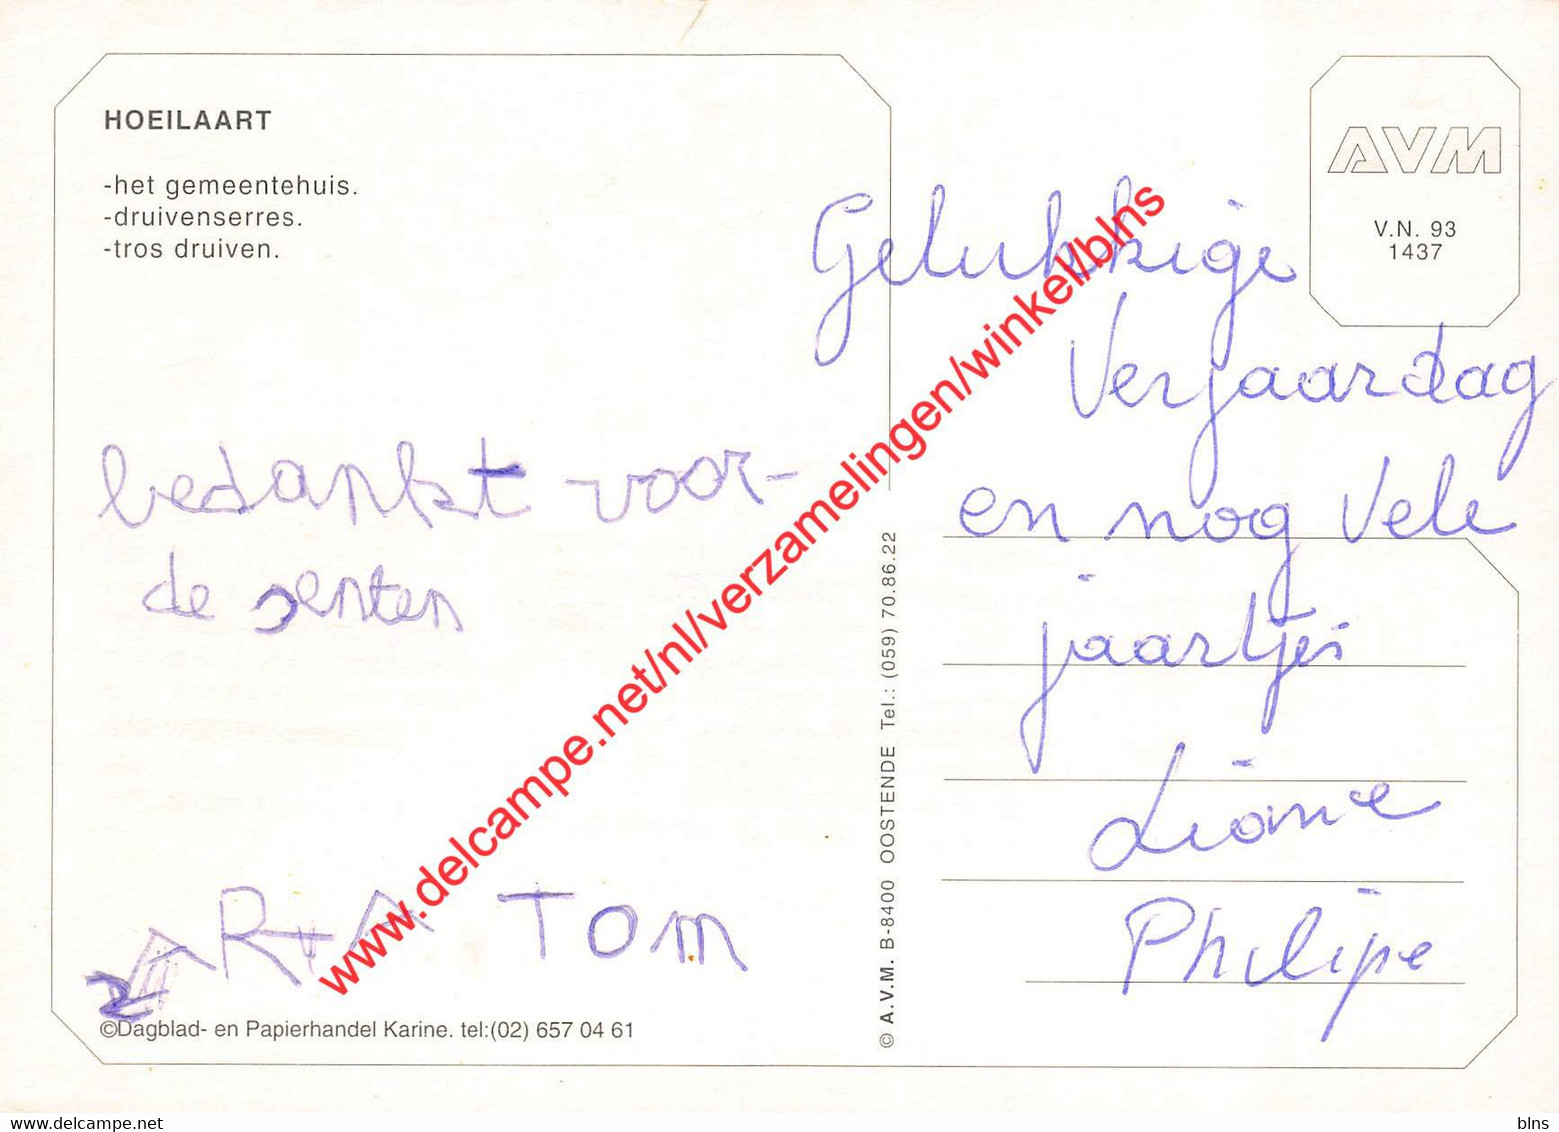 HOEILAART
-het gemeentehuis.
-druivenserres.
-tros druiven.
AVM
V.N. 93
1437
Gelukkige
Verjaardag
en nog vele
jaartjes
Liane
Philipe
bedankt voor
de centen
TOM
©Dagblad- en Papierhandel Karine. tel:(02) 657 04 61
© A.V.M. B-8400 OOSTENDE Tel.: (059) 70.86.22
www.delcampe.net/nl/verzamelingen/winkel/blns
www.delcampe.net
blns